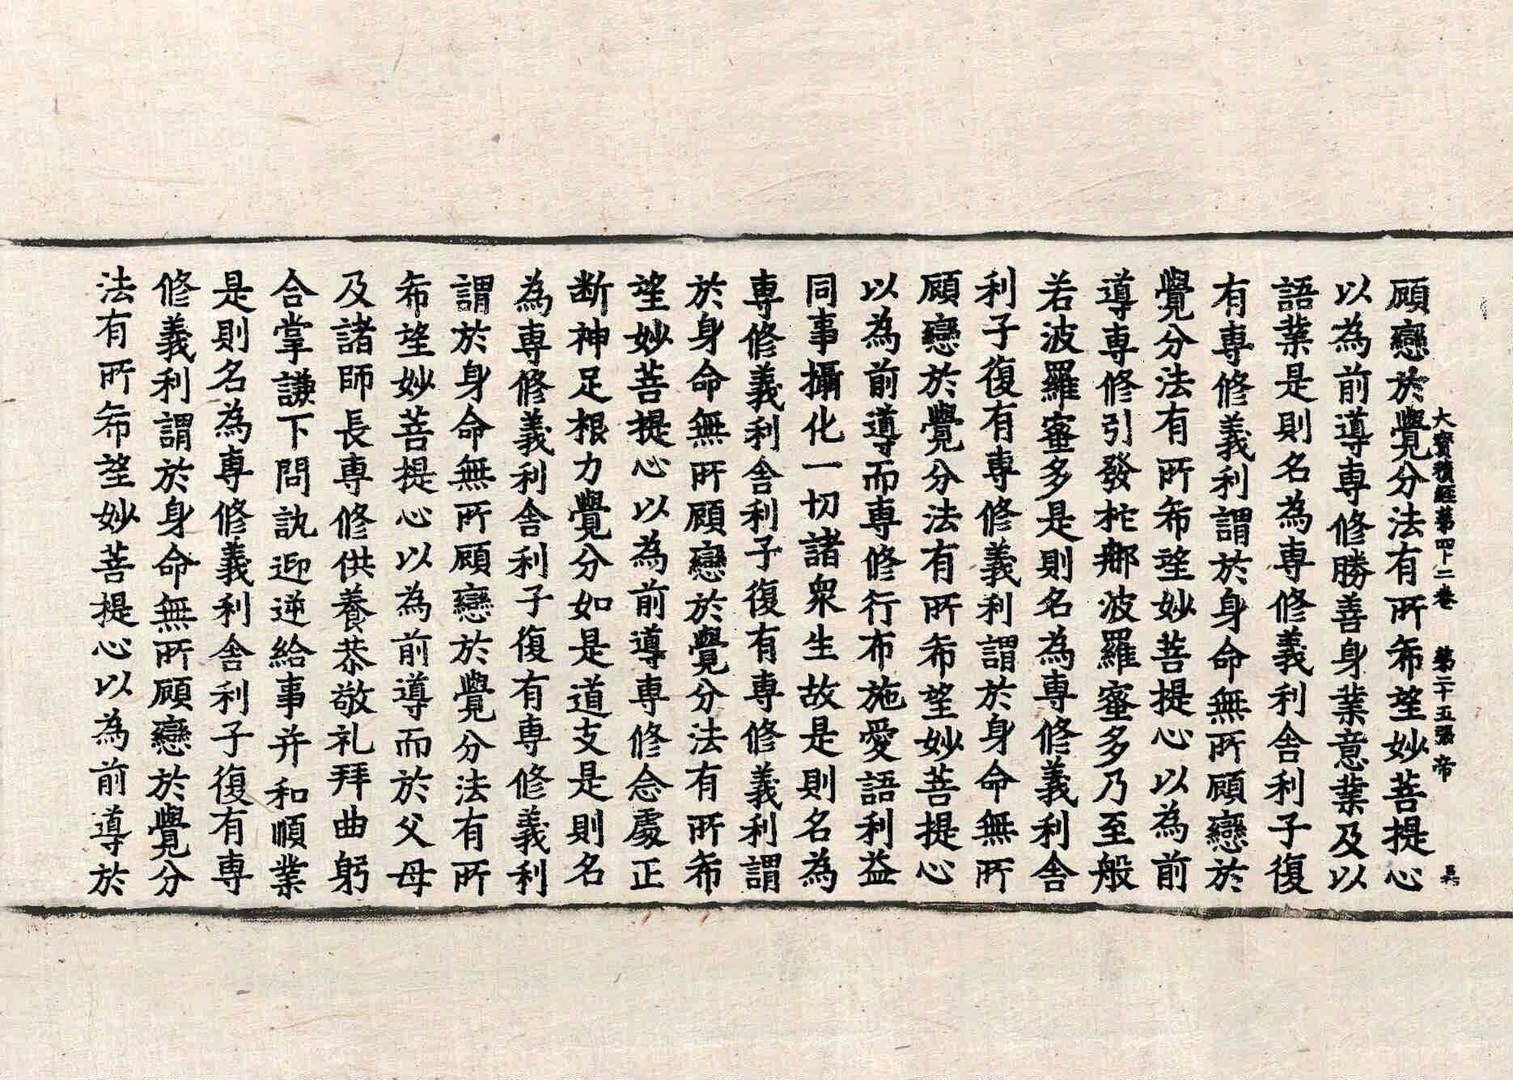 顧戀於覺分法有所希望妙菩提心
大寶積經第四十二卷　第二十五張　帝
以為前導專修勝善身業意業及以
語業是則名為專修義利舍利子復
有專修義利謂於身命無所顧戀於
覺分法有所希望妙菩提心以為前
導專修引發柁那波羅蜜多乃至般
若波羅蜜多是則名為專修義利舍
利子復有專修義利謂於身命無所
顧戀於覺分法有所希望妙菩提心
以為前導而專修行布施愛語利益
同事攝化一切諸衆生故是則名為
專修義利舍利子復有專修義利謂
於身命無所顧戀於覺分法有所希
望妙菩提心以為前導專修念處正
断神足根力覺分如是道支是則名
為專修義利舍利子復有專修義利
謂於身命無所顧戀於覺分法有所
希望妙菩提心以為前導而於父母
及諸師長專修供養恭敬礼拜曲躬
合掌謙下問訊迎逆給事并和順業
是則名為專修義利舍利子復有專
修義利謂於身命無所顧戀於覺分
法有所希望妙菩提心以為前導於